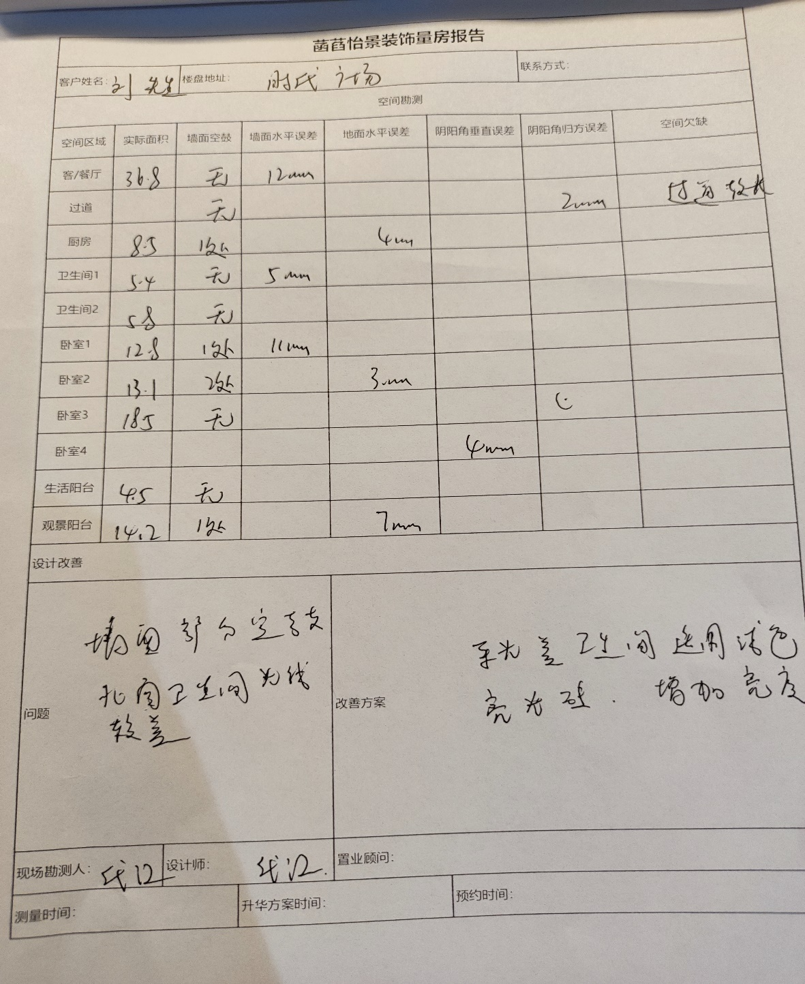 菡萏怡景装饰量房报告
客户姓名: 刘先生 楼盘地址: 时代广场 联系方式:
空间勘测
空间区域 实际面积 墙面空鼓 墙面水平误差 地面水平误差 阴阳角垂直误差 阴阳角归方误差 空间欠缺
客/餐厅 36.8 无 12mm
过道 无 2mm 过道较长
厨房 8.5 1处 4mm
卫生间1 5.4 无 5mm
卫生间2 5.8 无
卧室1 12.8 1处 11mm
卧室2 13.1 2处 3mm
卧室3 18.5 无
卧室4 4mm
生活阳台 4.5 无
观景阳台 14.2 1处 7mm
设计改善
问题
墙面部分空鼓
北面卫生间光线
较差
改善方案
采光差卫生间选用浅色
亮光砖. 增加亮度
现场勘测人: 设计师: 置业顾问:
测量时间: 升华方案时间: 预约时间: